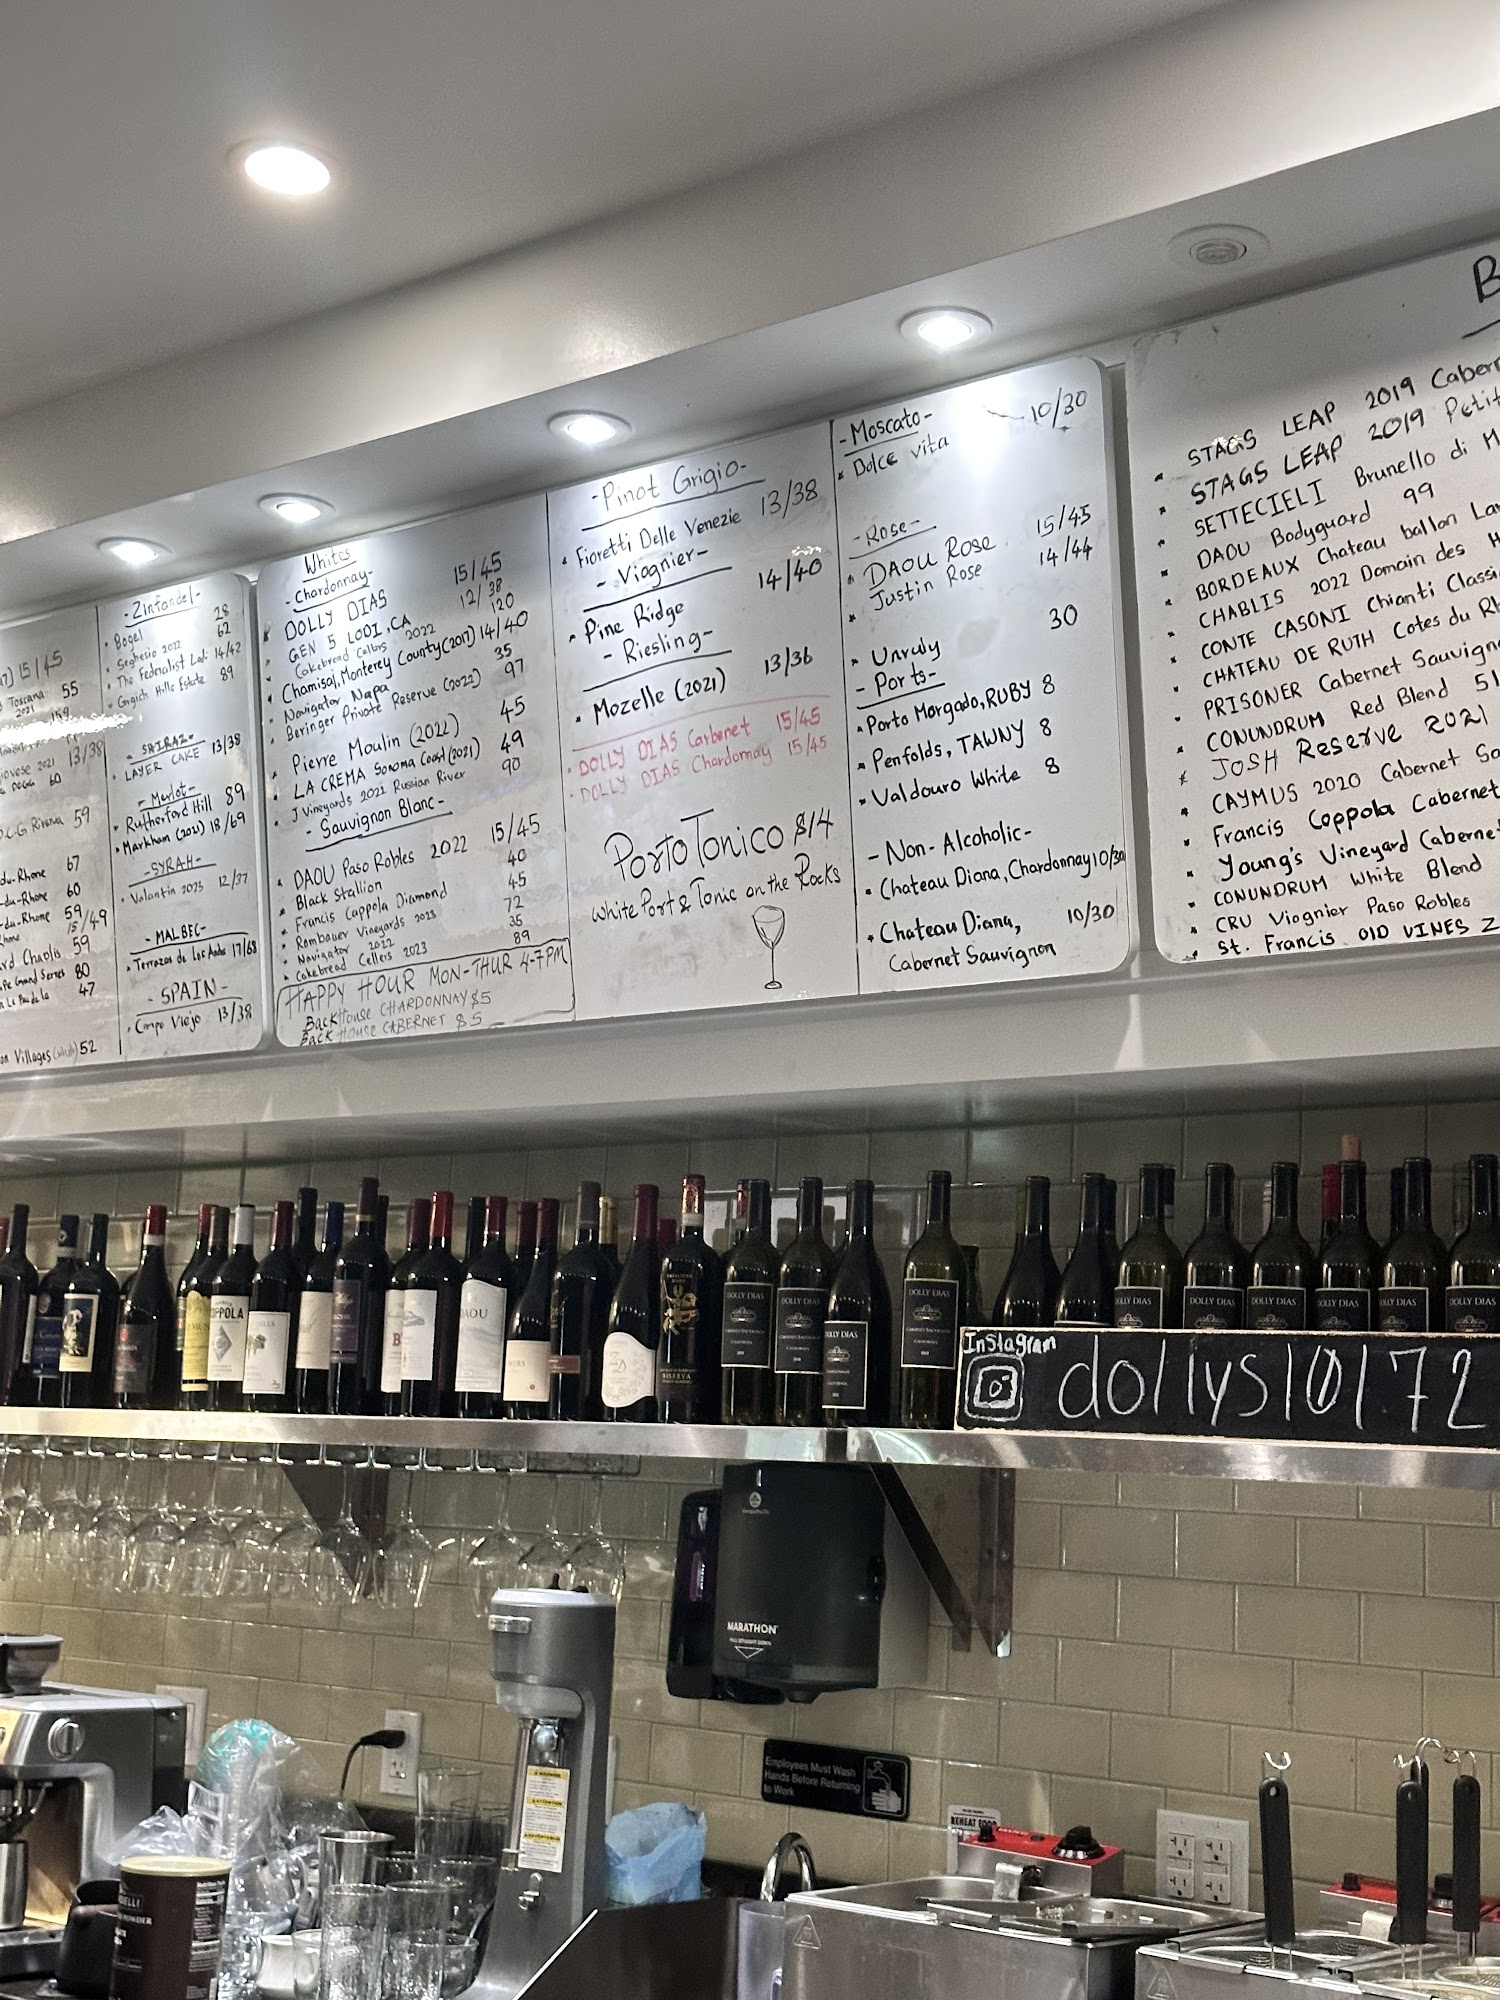 15/45
Toscana 55
2021
159
13/38
60
Riserva 59
du-Rhone 67
-du-Rhone 60
-du-Rhone 59
15/49
Chablis 59
80
47
Villages 52
-Zinfandel-
Bogel 28
Seghesio 2022 62
The Federalist Lodi 14/42
Grgich Hills Estate 89
-SHIRAZ-
LAYER CAKE 13/38
-Merlot-
Rutherford Hill 89
Markham (2021) 18/69
-SYRAH-
Valantin 2023 12/37
-MALBEC-
Terrazas de Los Andes 17/68
-SPAIN-
Campo Viejo 13/38
Whites
-Chardonnay-
DOLLY DIAS 15/45
GEN 5 LODI, CA 12/38
Cakebread Cellars 2022 120
Chamisal, Monterey County (2017) 14/40
Navigator Napa 35
Beringer Private Reserve (2022) 97
Pierre Moulin (2022) 45
LA CREMA Sonoma Coast (2021) 49
J Vineyards 2021 Russian River 90
-Sauvignon Blanc-
DAOU Paso Robles 2022 15/45
Black Stallion 40
Francis Coppola Diamond 45
Rombauer Vineyards 2023 72
Navigator 2022 35
Cakebread Cellers 2023 89
HAPPY HOUR MON-THUR 4-7PM
BackHouse CHARDONNAY $5
Back House CABERNET $5
-Pinot Grigio-
Fioretti Delle Venezie 13/38
-Viognier-
Pine Ridge 14/40
-Riesling-
Mozelle (2021) 13/36
DOLLY DIAS Carbenet 15/45
DOLLY DIAS Chardonnay 15/45
Porto Tonico $14
White Port & Tonic on the Rocks
-Moscato-
Dolce vita 10/30
-Rose-
DAOU Rose 15/45
Justin Rose 14/44
Unruly 30
-Ports-
Porto Morgado, RUBY 8
Penfolds, TAWNY 8
Valdouro White 8
-Non-Alcoholic-
Chateau Diana, Chardonnay 10/30
Chateau Diana, 10/30
Cabernet Sauvignon
STAGS LEAP 2019
STAGS LEAP 2019
SETTECIELI Brunello di
DAOU Bodyguard 99
BORDEAUX Chateau ballan
CHABLIS 2022 Domain des
CONTE CASONI Chianti
CHATEAU DE RUTH Cotes du
PRISONER Cabernet
CONUNDRUM Red Blend 51
JOSH Reserve 2021
CAYMUS 2020 Cabernet
Francis Coppola Cabernet
Young's Vineyard
CONUNDRUM White Blend
CRU Viognier Paso Robles
St. Francis OlD VINES Z
COPPOLA
DAOU
RISERVA
DOLLY DIAS
DOLLY DIAS
DOLLY DIAS
DOLLY DIAS
DOLLY DIAS
DOLLY DIAS
DOLLY DIAS
DOLLY DIAS
DOLLY DIAS
DOLLY DIAS
Instagram
dollys10172
MARATHON
Employees Must Wash
Hands Before Returning
to Work
REHEAT FOOD